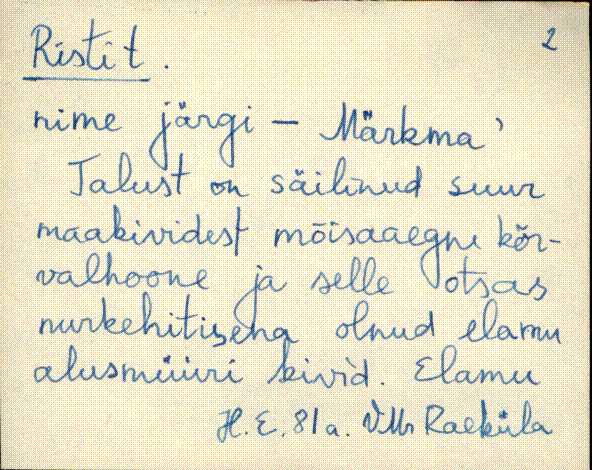 Risti t.
2
nime järgi — Märkma'
Talust on säilinud suur
maakividest mõisaaegne kõr-
valhoone ja selle otsas
nurkehitisena olnud elamu
alusmüüri kivid. Elamu
H. E. 81 a. VMr Raeküla